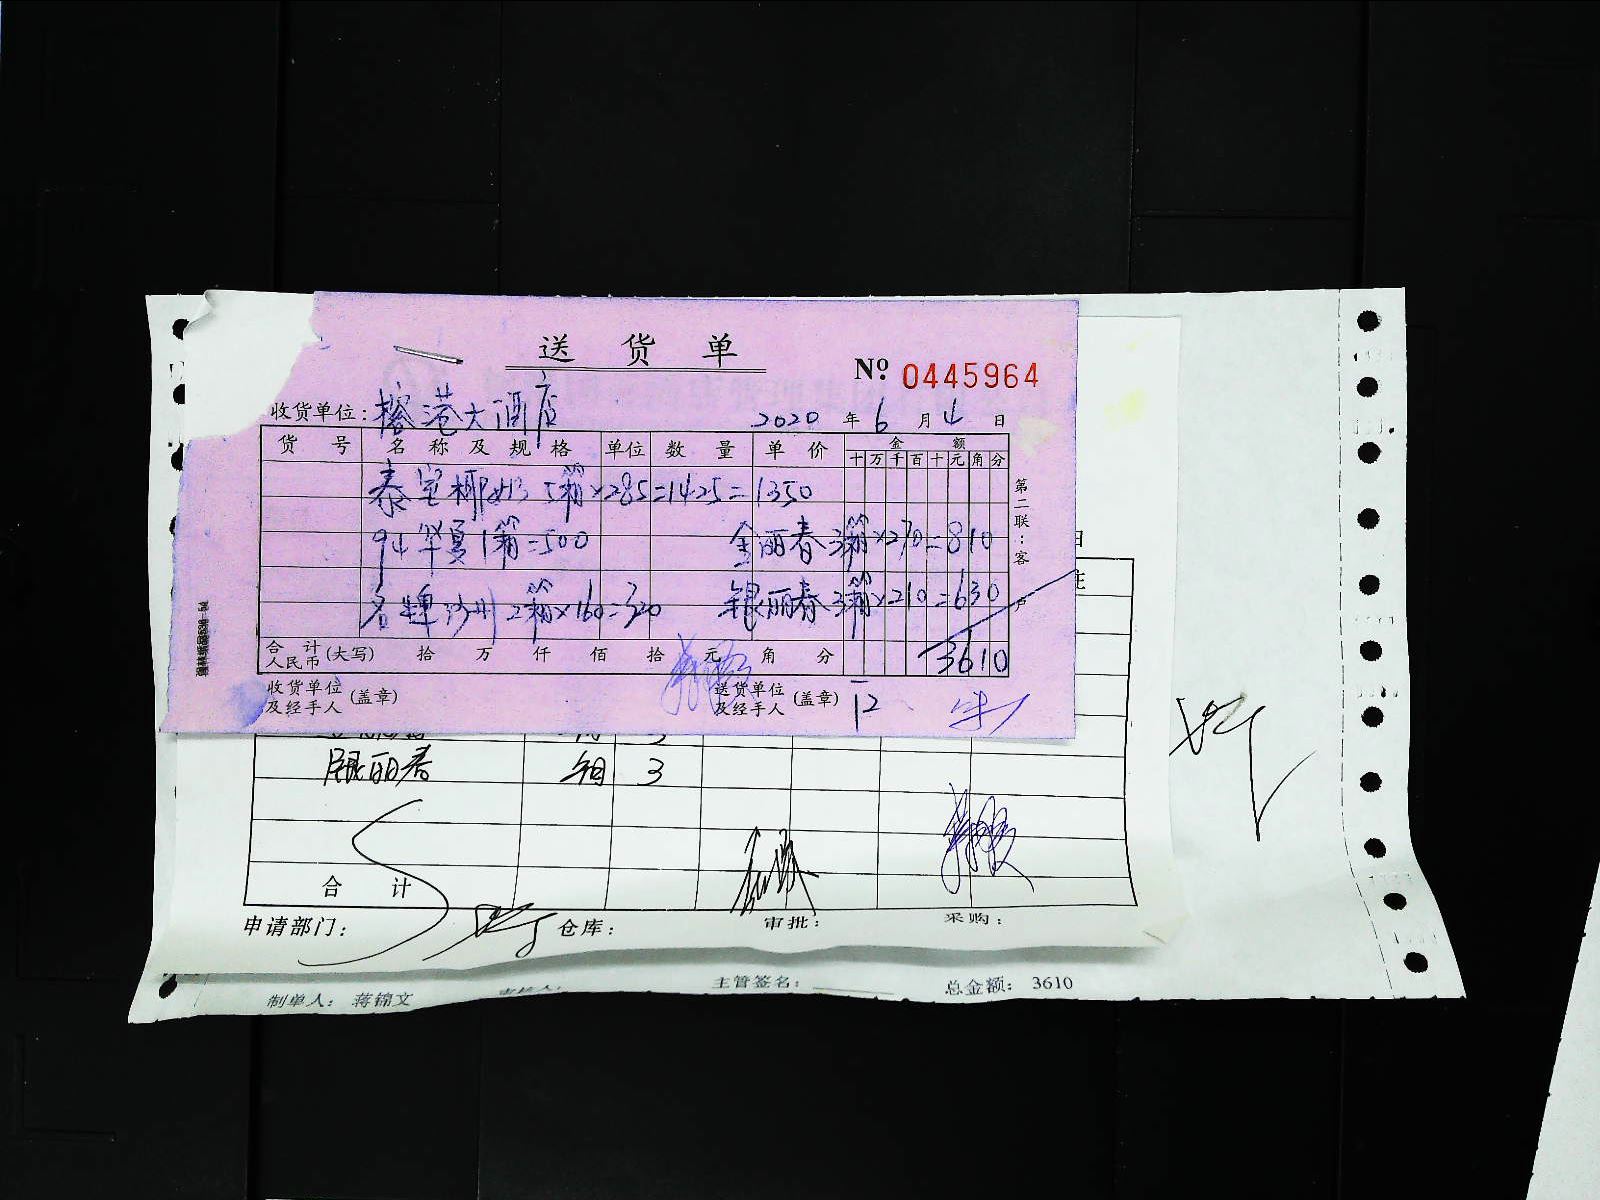 送货单
№ 0445964
收货单位：榕港大酒店 2020年6月4日
货号 名称及规格 单位 数量 单价 金额
十万千百十元角分
泰宝椰 5箱×285=1425=1350
94华夏1箱=500 金丽春3箱×270=810
名牌沙州2箱×160=320 银丽春3箱×210=630
合计人民币(大写) 拾 万 仟 佰 拾 元 角 分 3610
收货单位及经手人(盖章) 送货单位及经手人(盖章) 12
第二联：客户
银丽春 箱 3
合计
申请部门： 仓库： 审批： 采购：
制单人： 蒋锦文 主管签名： 总金额： 3610